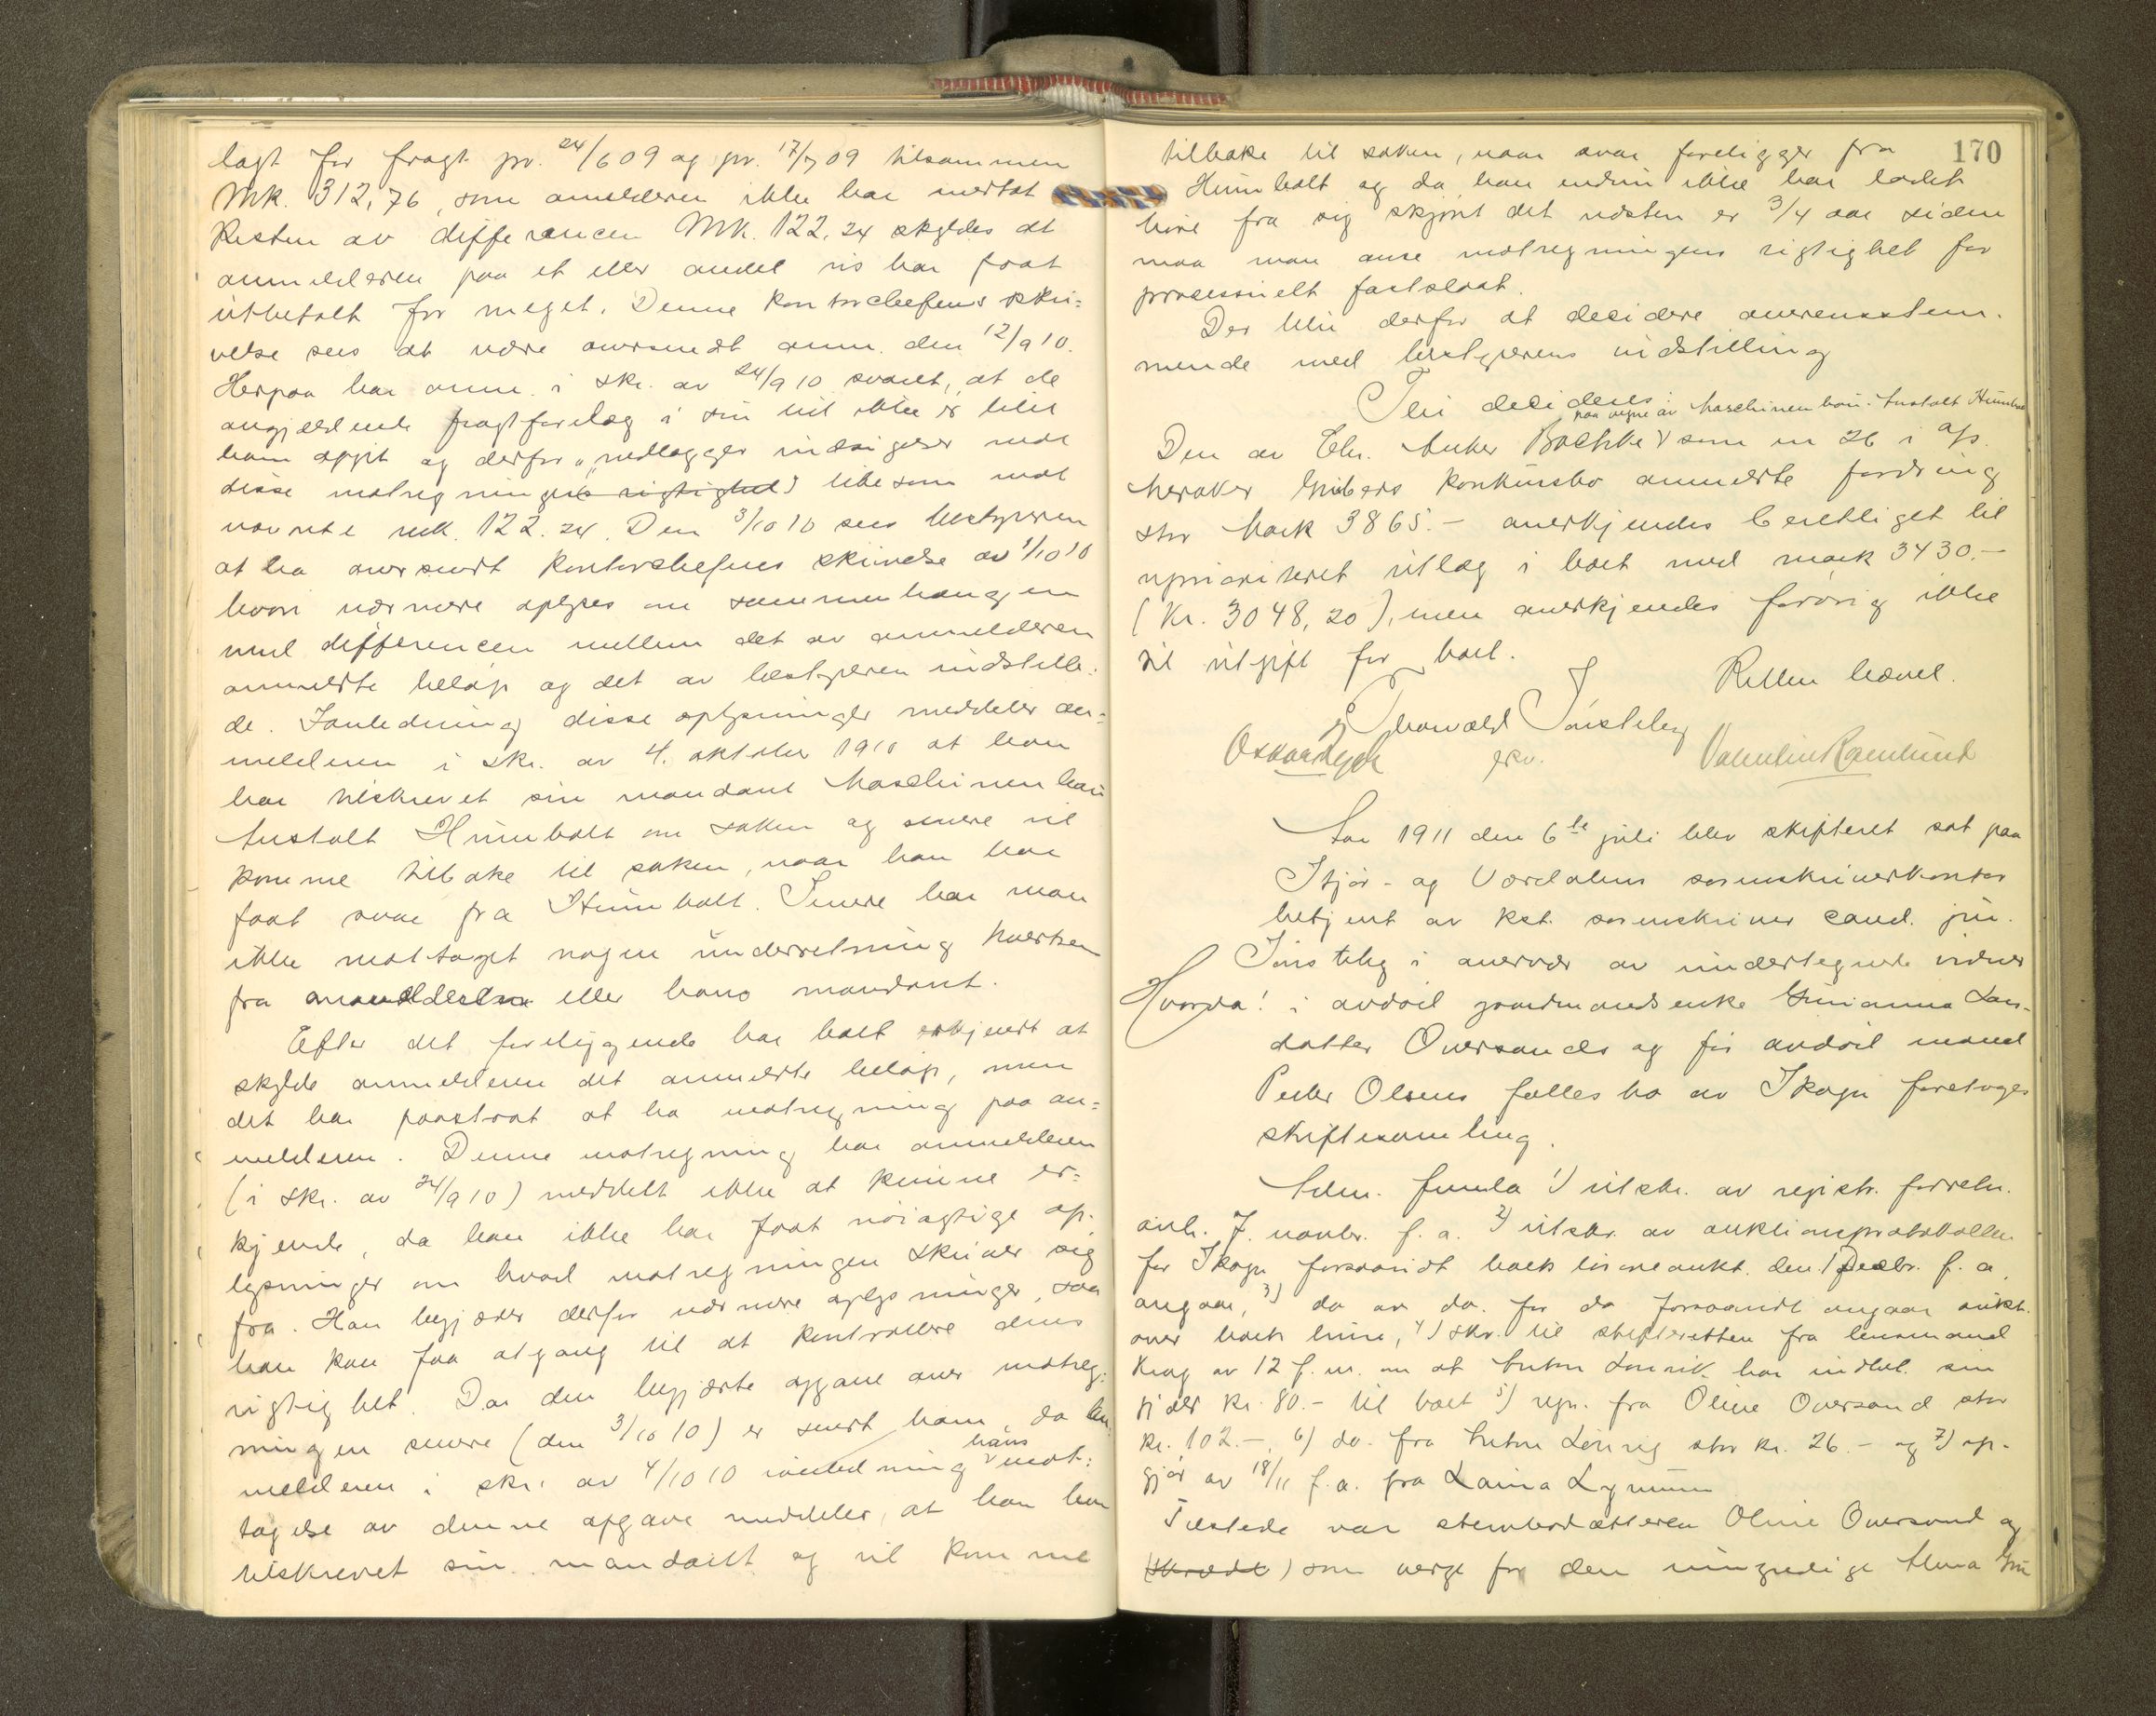 lagt for fragt pr. 24/6 09 og pr. 17/7 09 tilsammen
Mk. 312,76, som anmelderen ikke har medtat
Resten av differencen Mk. 122,24 skyldes at
anmelderen paa et eller andet vis har faat
utbetalt for meget. Denne kontorchefens skri=
velse sees at være oversendt anm. den 12/9 10.
Herpaa har anm. i skr. av 24/9 10 svaret, at de
angjældende fragtforlæg i sin tid ikke er blit
ham opgit og derfor "nedlægger indsigelser mot
disse motregninger likesom mot
nævnte mk. 122.24. Den 3/10 10 sees bestyreren
at ha oversendt kontorchefens skrivelse av 1/10 10
hvori nærmere oplyses om sammenhængen
med differencen mellem det av anmelderen
anmeldte beløp og det av bestyreren indstille-
de. I anledning disse oplysninger meddeler an=
melderen i skr. av 4. oktober 1910 at han
har tilskrevet sin mandant Maschinenbau
Anstalt Humboldt om saken og senere vil
komme tilbake til saken, naar han har
faat svar fra Humboldt. Senere har man
ikke mottaget nogen underretning hverken
fra anmelderen eller hans mandant.
Efter det foreliggende har boet erkjendt at
skylde anmelderen det anmeldte beløp, men
det har paastaat at ha motregning paa an=
melderen. Denne motregning har anmelderen
(i skr. av 24/9 10) meddelt ikke at kunne er=
kjende, da han ikke har faat nøiagtige op-
lysninger om hvad motregningen skriver sig
fra. Han begjærer derfor nærmere oplysninger, saa
han kan faa adgang til at kontrollere dens
rigtighet. Da den begjærte opgave over motreg-
ningen senere (den 3/10 10) er sendt ham, da an
melderen i skr. av 4/10 10 i anledning hans mot=
tagelse av denne opgave meddeler, at han har
tilskrevet sin mandant og vil komme
170
tilbake til saken, naar svar foreligger fra
Humboldt og da han endnu ikke har ladet
høre fra sig skjønt det næsten er 3/4 aar siden
maa man anse motregningens rigtighet for
processuelt fastslaat.
Der blir derfor at decidere overensstem-
mende med bestyrerens indstilling
Ti decideres:
Den av Chr. Anker Bachke paa vegne av Maschinenbau-Anstalt Humboldt som nr 26 i A/s.
Meraker Grubers konkursbo anmeldte fordring
stor Mark 3865.- anerkjendes berettiget til
uprioritert utlæg i boet med mark 3430.-
(Kr. 3048,20), men anerkjendes forøvrig ikke
til utgift for boet.
Retten hævet.
Thorvald
Oskar Nyck
Valentin Ramlund
Aar 1911 den 6te juli blev skifteret sat paa
Stjør- og Værdalens sorenskriverkontor
betjent av kst. sorenskriver cand. jur.
i overvær av undertegnede vidner
Hvorda: i avdød gaardmandsenke Gurianna Lars-
datter Oversands og før avdød mand
Peder Olsens fællesbo av Skogn foretoges
skiftesamling.
Adm. fremla 1) utskr. av registr. forretn.
avh. 7. novbr. f. a. 2) utskr. av auktionsprotokollen
for Skogn forsaavidt boets løsøreaukt. den 1 Decbr. f. a.
angaar, 3) do av do. for do forsaavidt angaar aukt.
over boets huse, 4) skr. til skifteretten fra lensmand
Krag av 12 f. m. om at Anton har indbet. sin
gjæld kr. 80.- til boet 5) regn. fra Oline Oversand stor
kr. 102.-, 6) do. fra Anton stor kr. 26.- og 7) op-
gjør av 18/11 f. a. fra Laura Lynum
Tilstede var sterbodatteren Oline Oversand og
som verge for den umyndige Anna